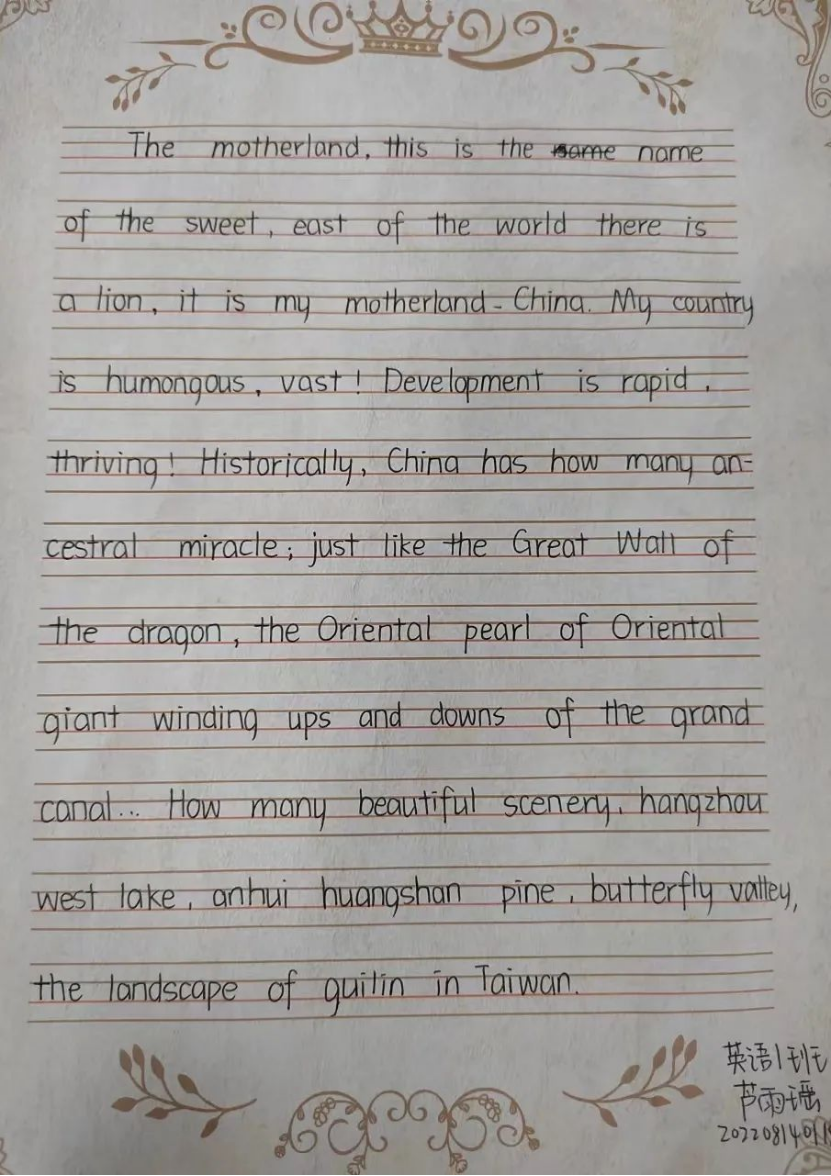 The motherland, this is the same name
of the sweet, east of the world there is
a lion, it is my motherland - China. My country
is humongous, vast! Development is rapid,
thriving! Historically, China has how many an-
cestral miracle; just like the Great Wall of
the dragon, the Oriental pearl of Oriental
giant winding ups and downs of the grand
canal... How many beautiful scenery, hangzhou
west lake, anhui huangshan pine, butterfly valley,
the landscape of guilin in Taiwan.
英语1班
芦雨瑶